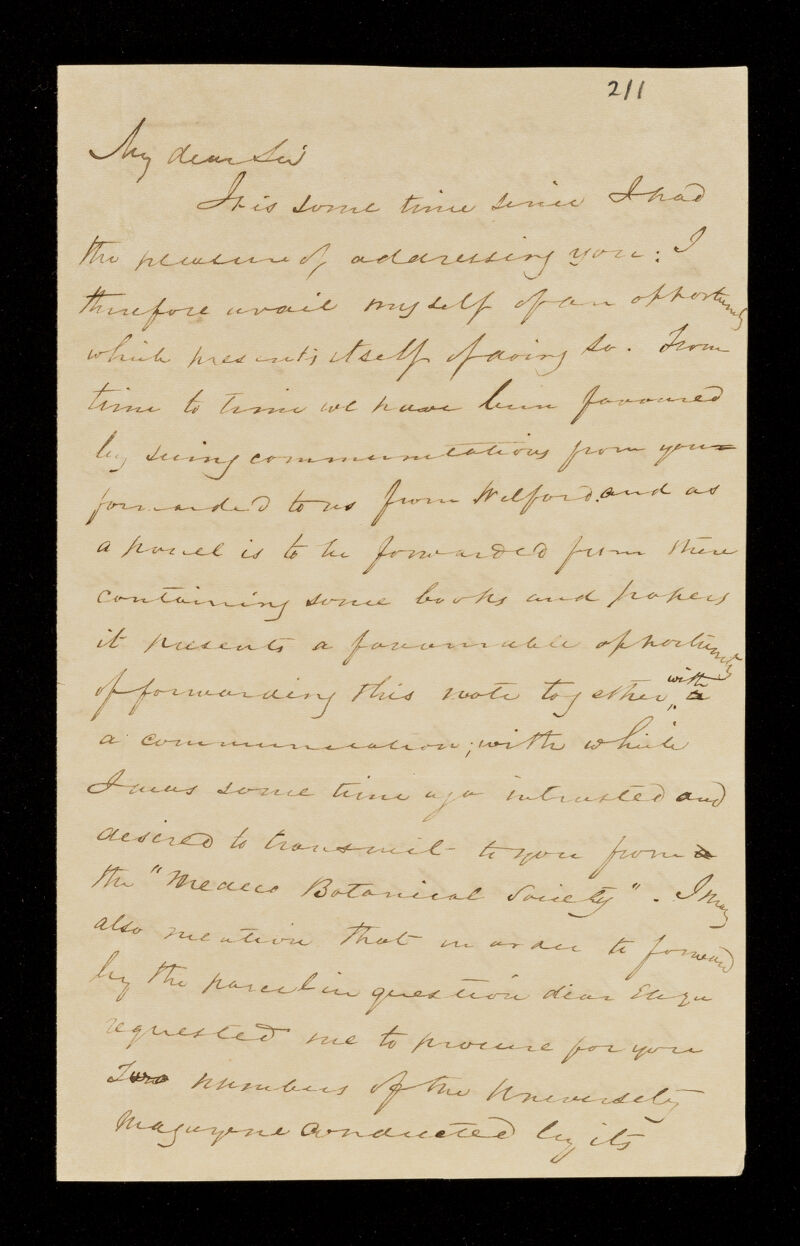 211
My dear Sir
It is some time since I had
the pleasure of addressing you: I
therefore avail myself of an opportunity
which presents itself of doing so. From
time to time we have been favoured
by seing communications from you
forwarded to us from Wilford. and as
a parcel is to be forwarded from there
containing some books and papers
it presents a favourable opportunity
of forwarding this note together with
a communication, with which
I was some time ago intrusted and
desired to transmit to you from
the "Medico Botanical Society". I may
also mention that in order to forward
by the parcel in question dear Eliza
requested me to procure for you
Two numbers of the University
Magazene conducted by its